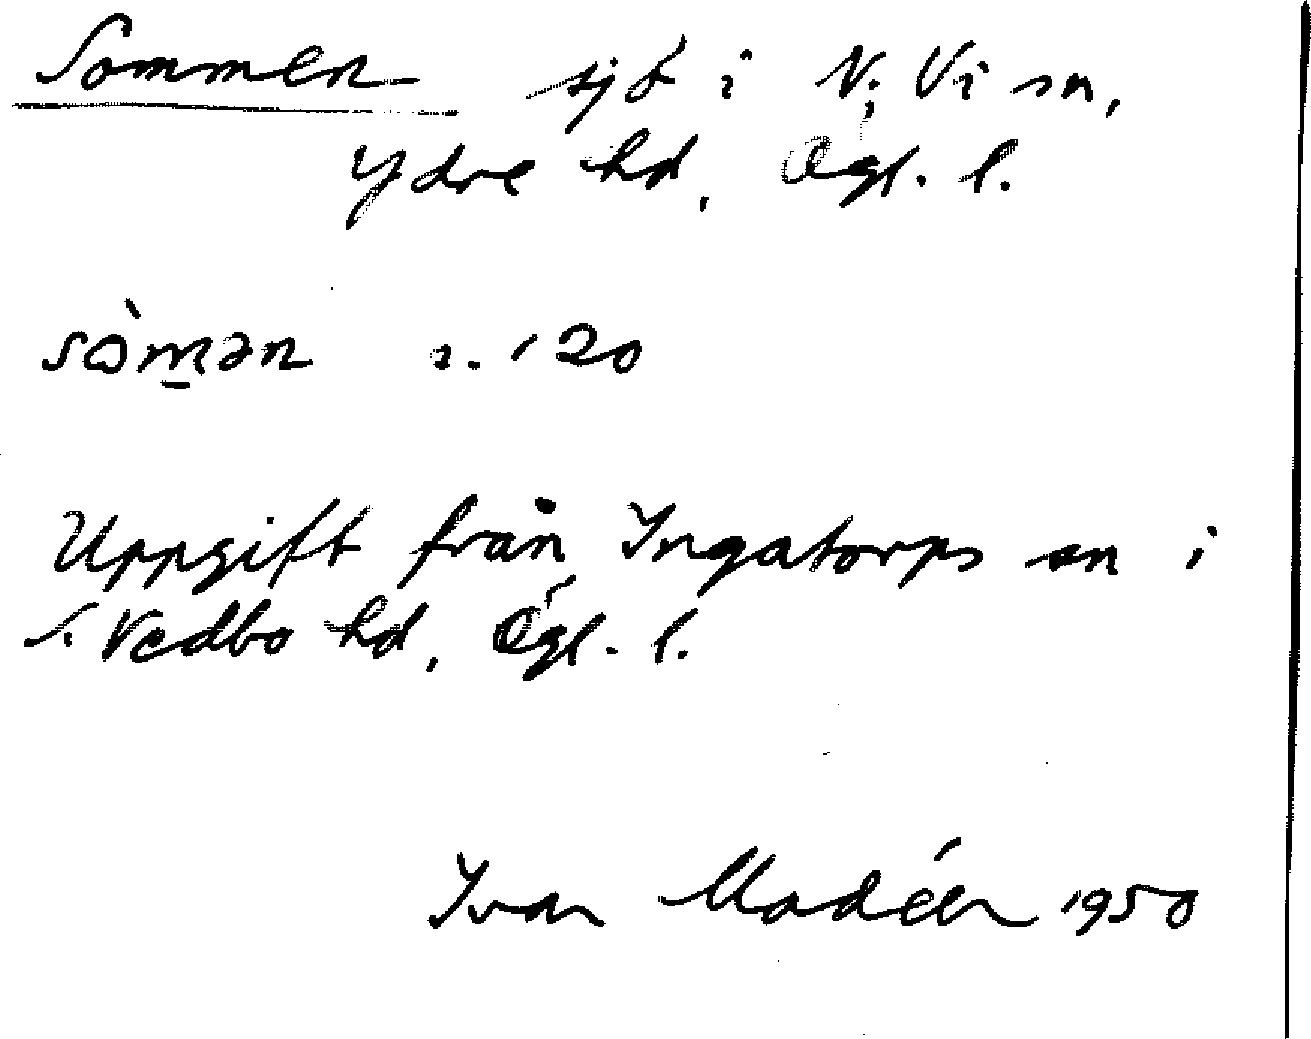 Sommen sjö i N. Vi sn,
Ydre hd, Ögl. l.
sòm̲ən 2. '20
Uppgift från Ingatorps sn i
S. Vedbo hd, Ögl. l.
Ivar Modéer 1950